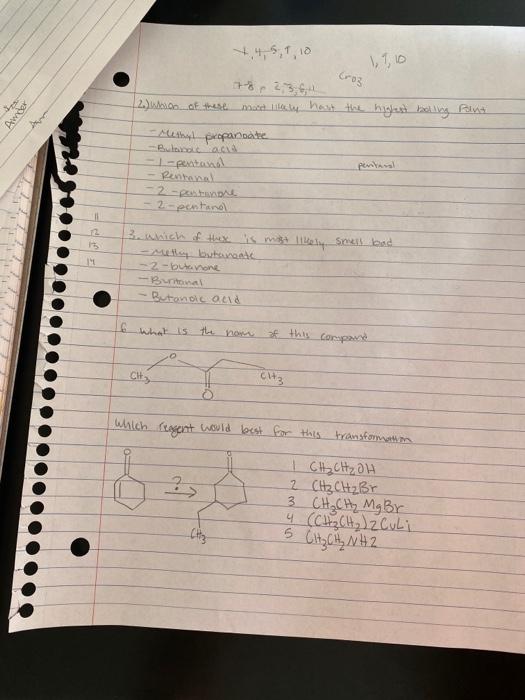 1, 4, 5, 9, 10
1, 9, 10
CrO3
7-8, 2, 3, 6, 11
2.) Which of these most likely have the highest boiling Point
- Methyl propanoate
- Butanoic acid
- 1-pentanol
pentanal
- Pentanal
- 2-pentanone
- 2-pentanol
11
12
3. which of thex is most likely smell bad
13
- Methy butanoate
14
- 2-butanone
- Butanal
- Butanoic acid
6 what is the name of this compound
O
CH3
CH3
O
which regent would best for this transformation
O
O
1 CH3CH2OH
2 CH3CH2Br
?
3 CH3CH2MgBr
4 (CH3CH2)2CuLi
CH3
5 CH3CH2NH2